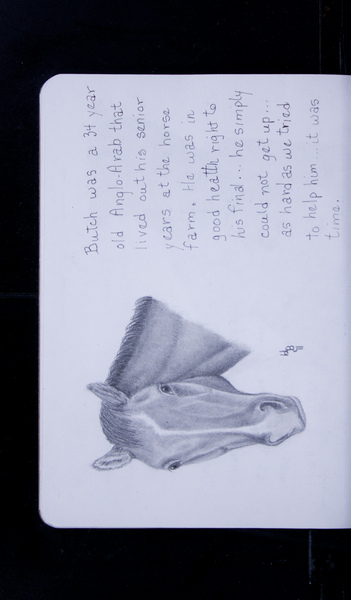 Butch was a 34 year
old Anglo-Arab that
lived out his senior
years at the horse
farm. He was in
good health right to
his final... he simply
could not get up...
as hard as we tried
to help him... it was
time.